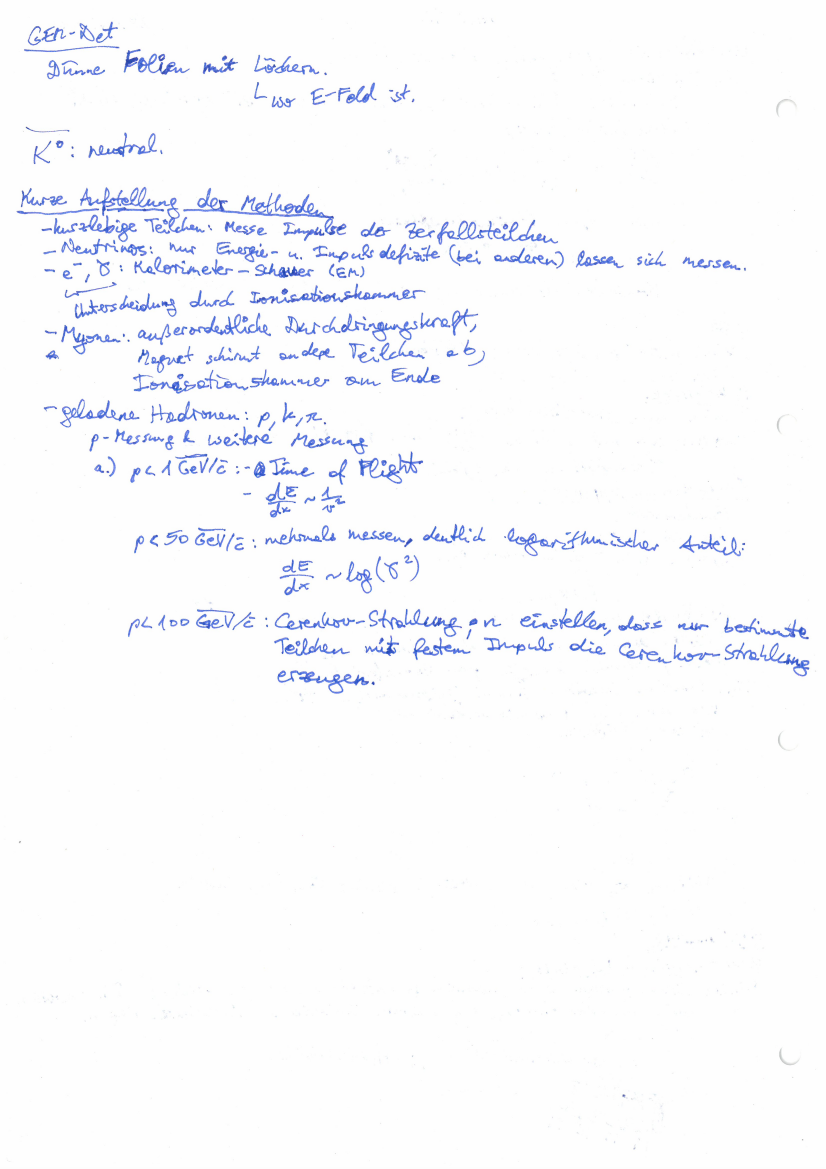 GEM-Det
Dünne Folien mit Löchern.
↳ wo E-Feld ist.
K⁰: neutral.
Kurze Aufstellung der Methoden
- kurzlebige Teilchen: Messe Impulse der Zerfallsteilchen
- Neutrinos: nur Energie- u. Impulsdefizite (bei anderen) lassen sich messen.
- e⁻, γ: Kalorimeter-Schauer (EM)
Unterscheidung durch Ionisationskammer
- Myonen: außerordentliche Durchdringungskraft,
Magnet schirmt andere Teilchen ab,
Ionisationskammer am Ende
- geladene Hadronen: p, k, π.
p-Messung & weitere Messung
a.) p < 1 GeV/c: - Time of Flight
- dE/dx ~ 1/v²
p < 50 GeV/c: mehrmals messen, deutlich logarithmischer Anteil:
dE/dx ~ log(γ²)
p < 100 GeV/c: Cerenkov-Strahlung, n einstellen, dass nur bestimmte
Teilchen mit festem Impuls die Cerenkov-Strahlung
erzeugen.